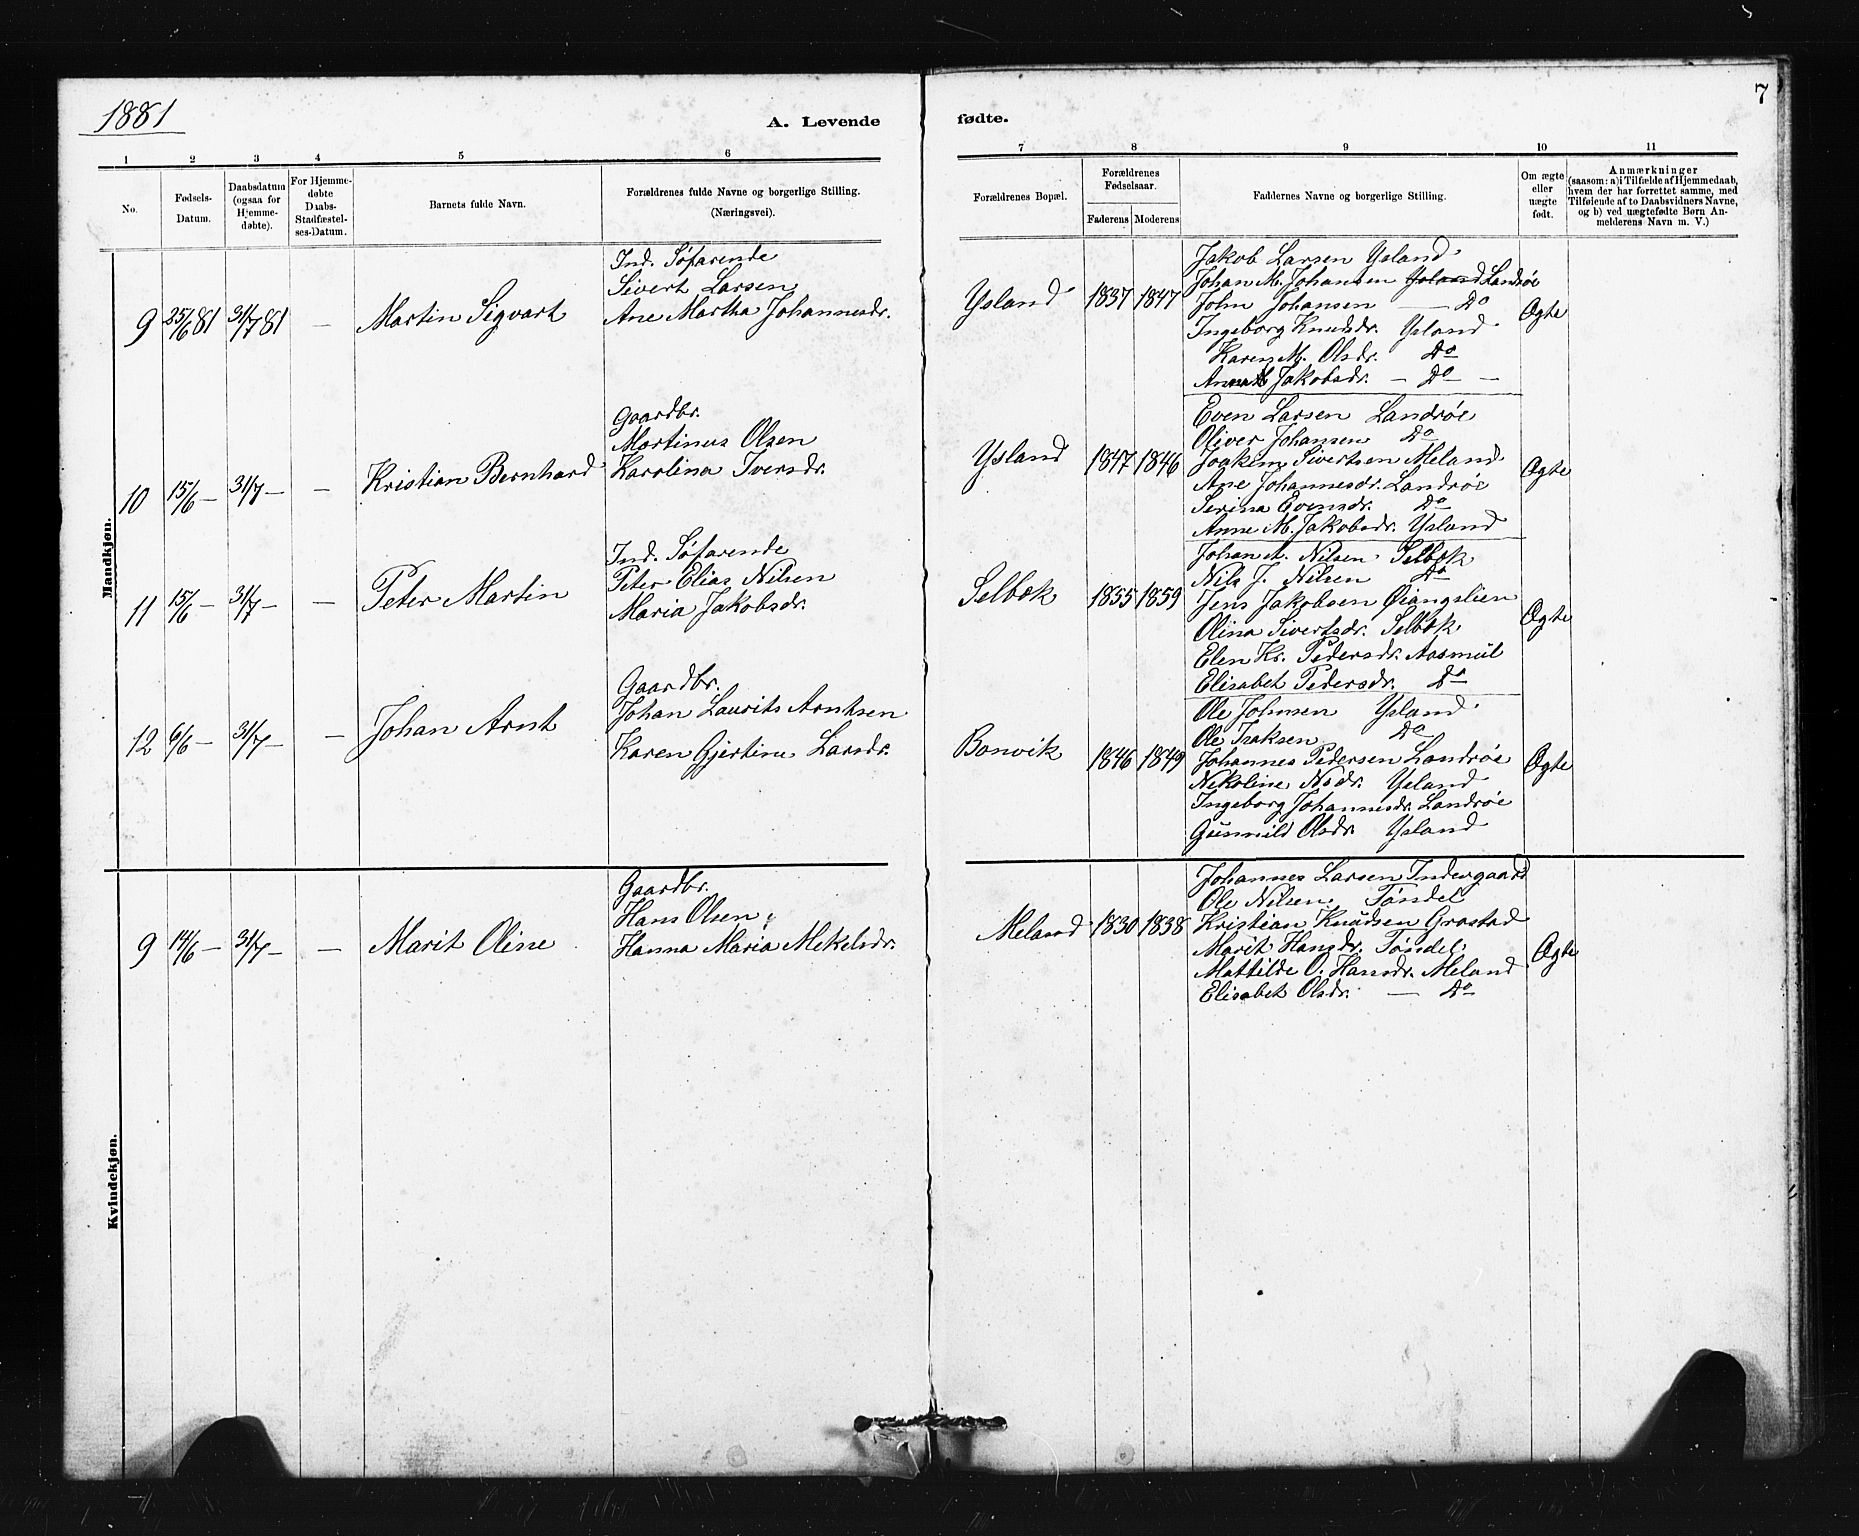 1881
A. Levende fødte.
7
1 2 3 4 5 6 7 8 9 10 11
No.
Fødsels-
Datum.
Daabsdatum
(ogsaa for
Hjemme-
døbte).
For Hjemme-
døbte
Daabs-
Stadfæstel-
ses-Datum.
Barnets fulde Navn.
Forældrenes fulde Navne og borgerlige Stilling.
(Næringsvei).
Forældrenes Bopæl.
Forældrenes
Fødselsaar.
Faderens Moderens
Faddernes Navne og borgerlige Stilling.
Om ægte
eller
uægte
født.
Anmærkninger
(saasom: a) i Tilfælde af Hjemmedaab,
hvem der har forrettet samme, med
Tilføiende af to Daabsvidners Navne,
og b) ved uægtefødte Børn An-
melderens Navn m. V.)
Mandkjøn.
9 25/6 81 31/7 81 — Martin Sigvart
Ind. Søfarende
Sivert Larsen
Ane Martha Johannesdr.
Ysland 1837 1847
Jakob Larsen Ysland
Johan M. Johansen Ysland Landrøe
John Johansen — Do
Ingeborg Knudsdr. Ysland
Karen M. Olsdr. Do
Anna Jakobsdr. — Do —
Ægte
10 15/6 — 31/7 — — Kristian Bernhard
Gaardbr.
Martinus Olsen
Karolina Iversdr.
Ysland 1847 1846
Even Larsen Landrøe
Oliver Johansen Do
Joakim Sivertsen Meland
Ane Johannesdr. Landrøe
Serina Evensdr. Do
Anne M. Jakobsdr. Ysland
Ægte
11 15/6 — 31/7 — — Peter Martin
Ind. Søfarende
Peter Elias Nilsen
Maria Jakobsdr.
Selbek 1855 1859
Johan A. Nilsen Selbek
Nils J. Nilsen Do
Jens Jakobsen Øiangslien
Olina Sivertsdr. Selbek
Elen Kr. Pedersdr. Aasmul
Elisabet Pedersdr. Do
Ægte
12 6/6 — 31/7 — — Johan Arnt
Gaardbr.
Johan Laurits Arntsen
Karen Gjertine Larsdr.
Bonvik 1846 1849
Ole Johnsen Ysland
Ole Isaksen Do
Johannes Pedersen Landrøe
Nekoline Nsdr. Ysland
Ingeborg Johannesdr. Landrøe
Gunnild Olsdr. Ysland
Ægte
Kvindekjøn.
9 14/6 — 31/7 — — Marit Oline
Gaardbr.
Hans Olsen
Hanna Maria Mekelsdr.
Meland 1830 1838
Johannes Larsen Indergaard
Ole Nilsen Tøndel
Kristian Knudsen Grostad
Marit Hansdr. Tøndel
Mattilde O. Hansdr. Meland
Elisabet Olsdr. — Do
Ægte